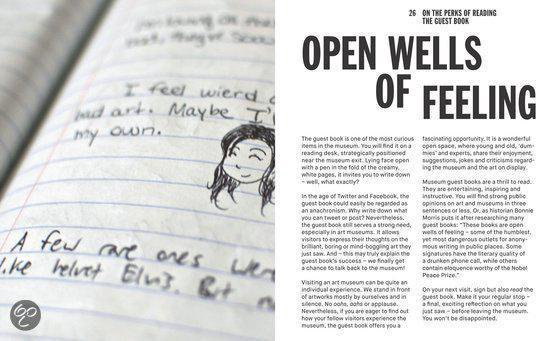 I feel wierd
bad art. Maybe I'
my own.
A few rare ones were
like helvet Elvis. But n
26 ON THE PERKS OF READING
THE GUEST BOOK
OPEN WELLS
OF FEELING
The guest book is one of the most curious
items in the museum. You will find it on a
reading desk, strategically positioned
near the museum exit. Lying face open
with a pen in the fold of the creamy,
white pages, it invites you to write down
– well, what exactly?
In the age of Twitter and Facebook, the
guest book could easily be regarded as
an anachronism. Why write down what
you can tweet or post? Nevertheless,
the guest book still serves a strong need,
especially in art museums. It allows
visitors to express their thoughts on the
brilliant, boring or mind-boggling art they
just saw. And – this may truly explain the
guest book's success – we finally get
a chance to talk back to the museum!
Visiting an art museum can be quite an
individual experience. We stand in front
of artworks mostly by ourselves and in
silence. No oohs, aahs or applause.
Nevertheless, if you are eager to find out
how your fellow visitors experience the
museum, the guest book offers you a
fascinating opportunity. It is a wonderful
open space, where young and old, 'dum-
mies' and experts, share their enjoyment,
suggestions, jokes and criticisms regard-
ing the museum and the art on display.
Museum guest books are a thrill to read.
They are entertaining, inspiring and
instructive. You will find strong public
opinions on art and museums in three
sentences or less. Or, as historian Bonnie
Morris puts it after researching many
guest books: "These books are open
wells of feeling – some of the humblest,
yet most dangerous outlets for anony-
mous writing in public places. Some
signatures have the literary quality of
a drunken phone call, while others
contain eloquence worthy of the Nobel
Peace Prize."
On your next visit, sign but also read the
guest book. Make it your regular stop –
a final, exciting reflection on what you
just saw – before leaving the museum.
You won't be disappointed.